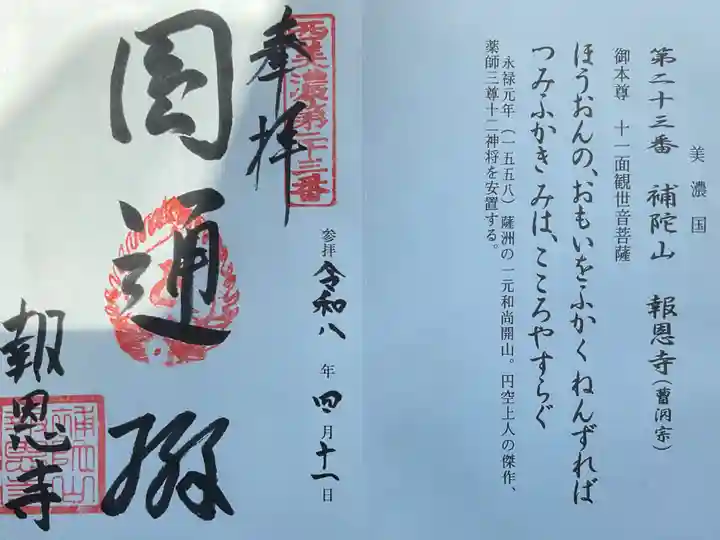 美濃国
第二十三番 補陀山 報恩寺(曹洞宗)
御本尊 十一面観世音菩薩
ほうおんの、おもいをふかくねんずれば
つみふかきみは、こころやすらぐ
永禄元年(一五五八)薩洲の一元和尚開山。円空上人の傑作、
薬師三尊十二神将を安置する。
西美濃第二十三番
奉拝
参拝 令和八年 四月 十一日
圓通
報恩寺